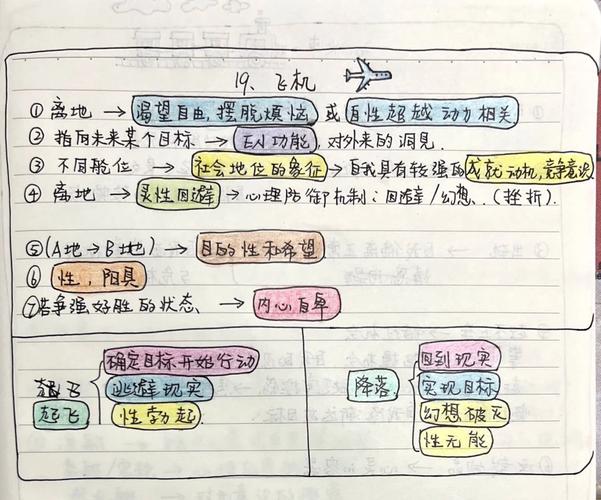 19、飞机
① 离地 → 渴望自由,摆脱烦恼 或 自性超越动力相关
② 指向未来某个目标 → EN功能,对外来的洞见.
③ 不同舱位 → 社会地位的象征 → 自我具有较强的成就动机,竞争意识
④ 离地 → 灵性回避 → 心理防御机制:回避/幻想..(挫折).
⑤(A地→B地) → 目的性和希望
⑥ 性,阳具
⑦若争强好胜的状态、→ 内心自卑
起飞
确定目标开始行动
逃避现实
起飞
性勃起
降落
回到现实
实现目标
幻想破灭
性无能